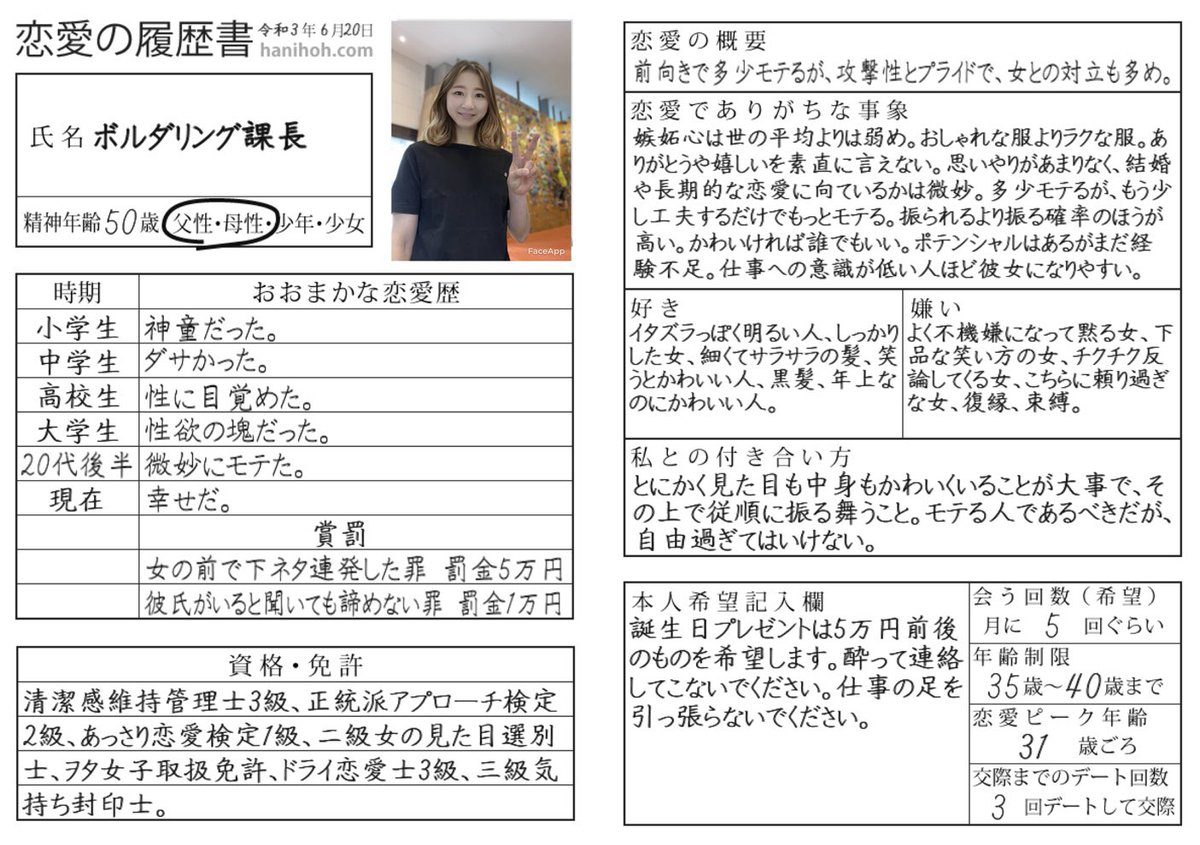 恋愛の履歴書
令和3年6月20日
hanihoh.com
氏名 ボルダリング課長
精神年齢50歳 父性・母性・少年・少女
FaceApp
時期 おおまかな恋愛歴
小学生 神童だった。
中学生 ダサかった。
高校生 性に目覚めた。
大学生 性欲の塊だった。
20代後半 微妙にモテた。
現在 幸せだ。
賞罰
女の前で下ネタ連発した罪 罰金5万円
彼氏がいると聞いても諦めない罪 罰金1万円
資格・免許
清潔感維持管理士3級、正統派アプローチ検定
2級、あっさり恋愛検定1級、二級女の見た目選別
士、ヲタ女子取扱免許、ドライ恋愛士3級、三級気
持ち封印士。
恋愛の概要
前向きで多少モテるが、攻撃性とプライドで、女との対立も多め。
恋愛でありがちな事象
嫉妬心は世の平均よりは弱め。おしゃれな服よりラクな服。あ
りがとうや嬉しいを素直に言えない。思いやりがあまりなく、結婚
や長期的な恋愛に向ているかは微妙。多少モテるが、もう少
し工夫するだけでもっとモテる。振られるより振る確率のほうが
高い。かわいければ誰でもいい。ポテンシャルはあるがまだ経
験不足。仕事への意識が低い人ほど彼女になりやすい。
好き
イタズラっぽく明るい人、しっかり
した女、細くてサラサラの髪、笑
うとかわいい人、黒髪、年上な
のにかわいい人。
嫌い
よく不機嫌になって黙る女、下
品な笑い方の女、チクチク反
論してくる女、こちらに頼り過ぎ
な女、復縁、束縛。
私との付き合い方
とにかく見た目も中身もかわいくいることが大事で、そ
の上で従順に振る舞うこと。モテる人であるべきだが、
自由過ぎてはいけない。
本人希望記入欄
誕生日プレゼントは5万円前後
のものを希望します。酔って連絡
してこないでください。仕事の足を
引っ張らないでください。
会う回数(希望)
月に 5 回ぐらい
年齢制限
35歳〜40歳まで
恋愛ピーク年齢
31 歳ごろ
交際までのデート回数
3 回デートして交際